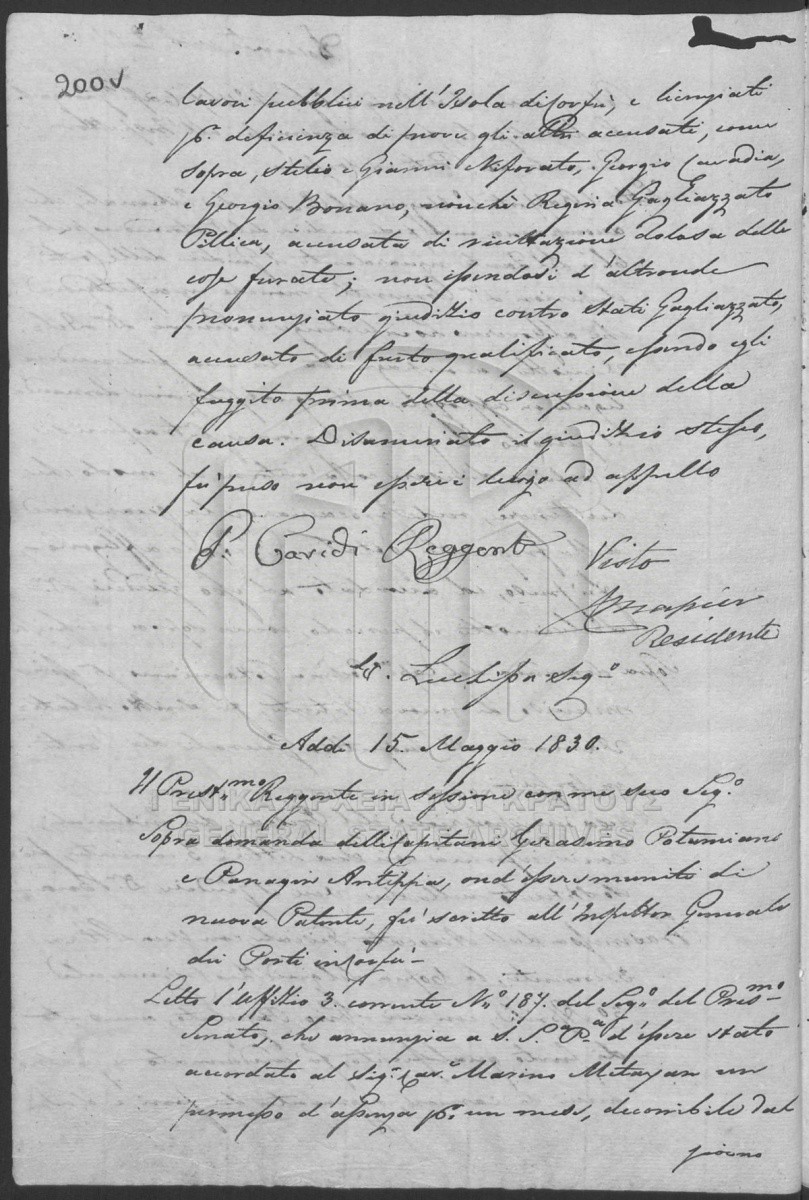 200v
lavori pubblici nell'Isola di Corfù, e licenziati
pr. deficienza di prove gli altri accusati, come
sopra, Stelio e Gianni Niforato, Giorgio Cavadia,
e Georgio Bonano, nonchè Regina Gagliazzato
Pillica, accusata di ricettazione dolosa delle
cose furate; non essendosi d'altronde
pronunziato giudizio contro Stati Gagliazzato,
accusato di furto qualificato, essendo egli
fuggito prima della discussione della
causa. Disaminato il giudizio stesso,
fù preso non esservi luogo ad appello
P: Caridi Reggente
Visto
Napier
Residente
Luchissa Segº
Addì 15. Maggio 1830.
Il Prestmo Reggente in sessione con me suo Segº
Sopra domanda delli Capitani Gerasimo Potamiano
e Panagin Antippa, ond'essere muniti di
nuova Patente, fù scritto all'Inspettor Generale
dei Porti in Corfù-
Letto l'uffizio 3. corrente Nº 187. del Segº del Presmo
Senato, che annunzia a S. Sª Pª d'essere stato
accordato al Sigr Cavº Marino Metaxan un
permesso d'assenza pr. un mese, decorribile dal
giorno
ΓΕΝΙΚΑ ΑΡΧΕΙΑ ΤΟΥ ΚΡΑΤΟΥΣ
GENERAL STATE ARCHIVES